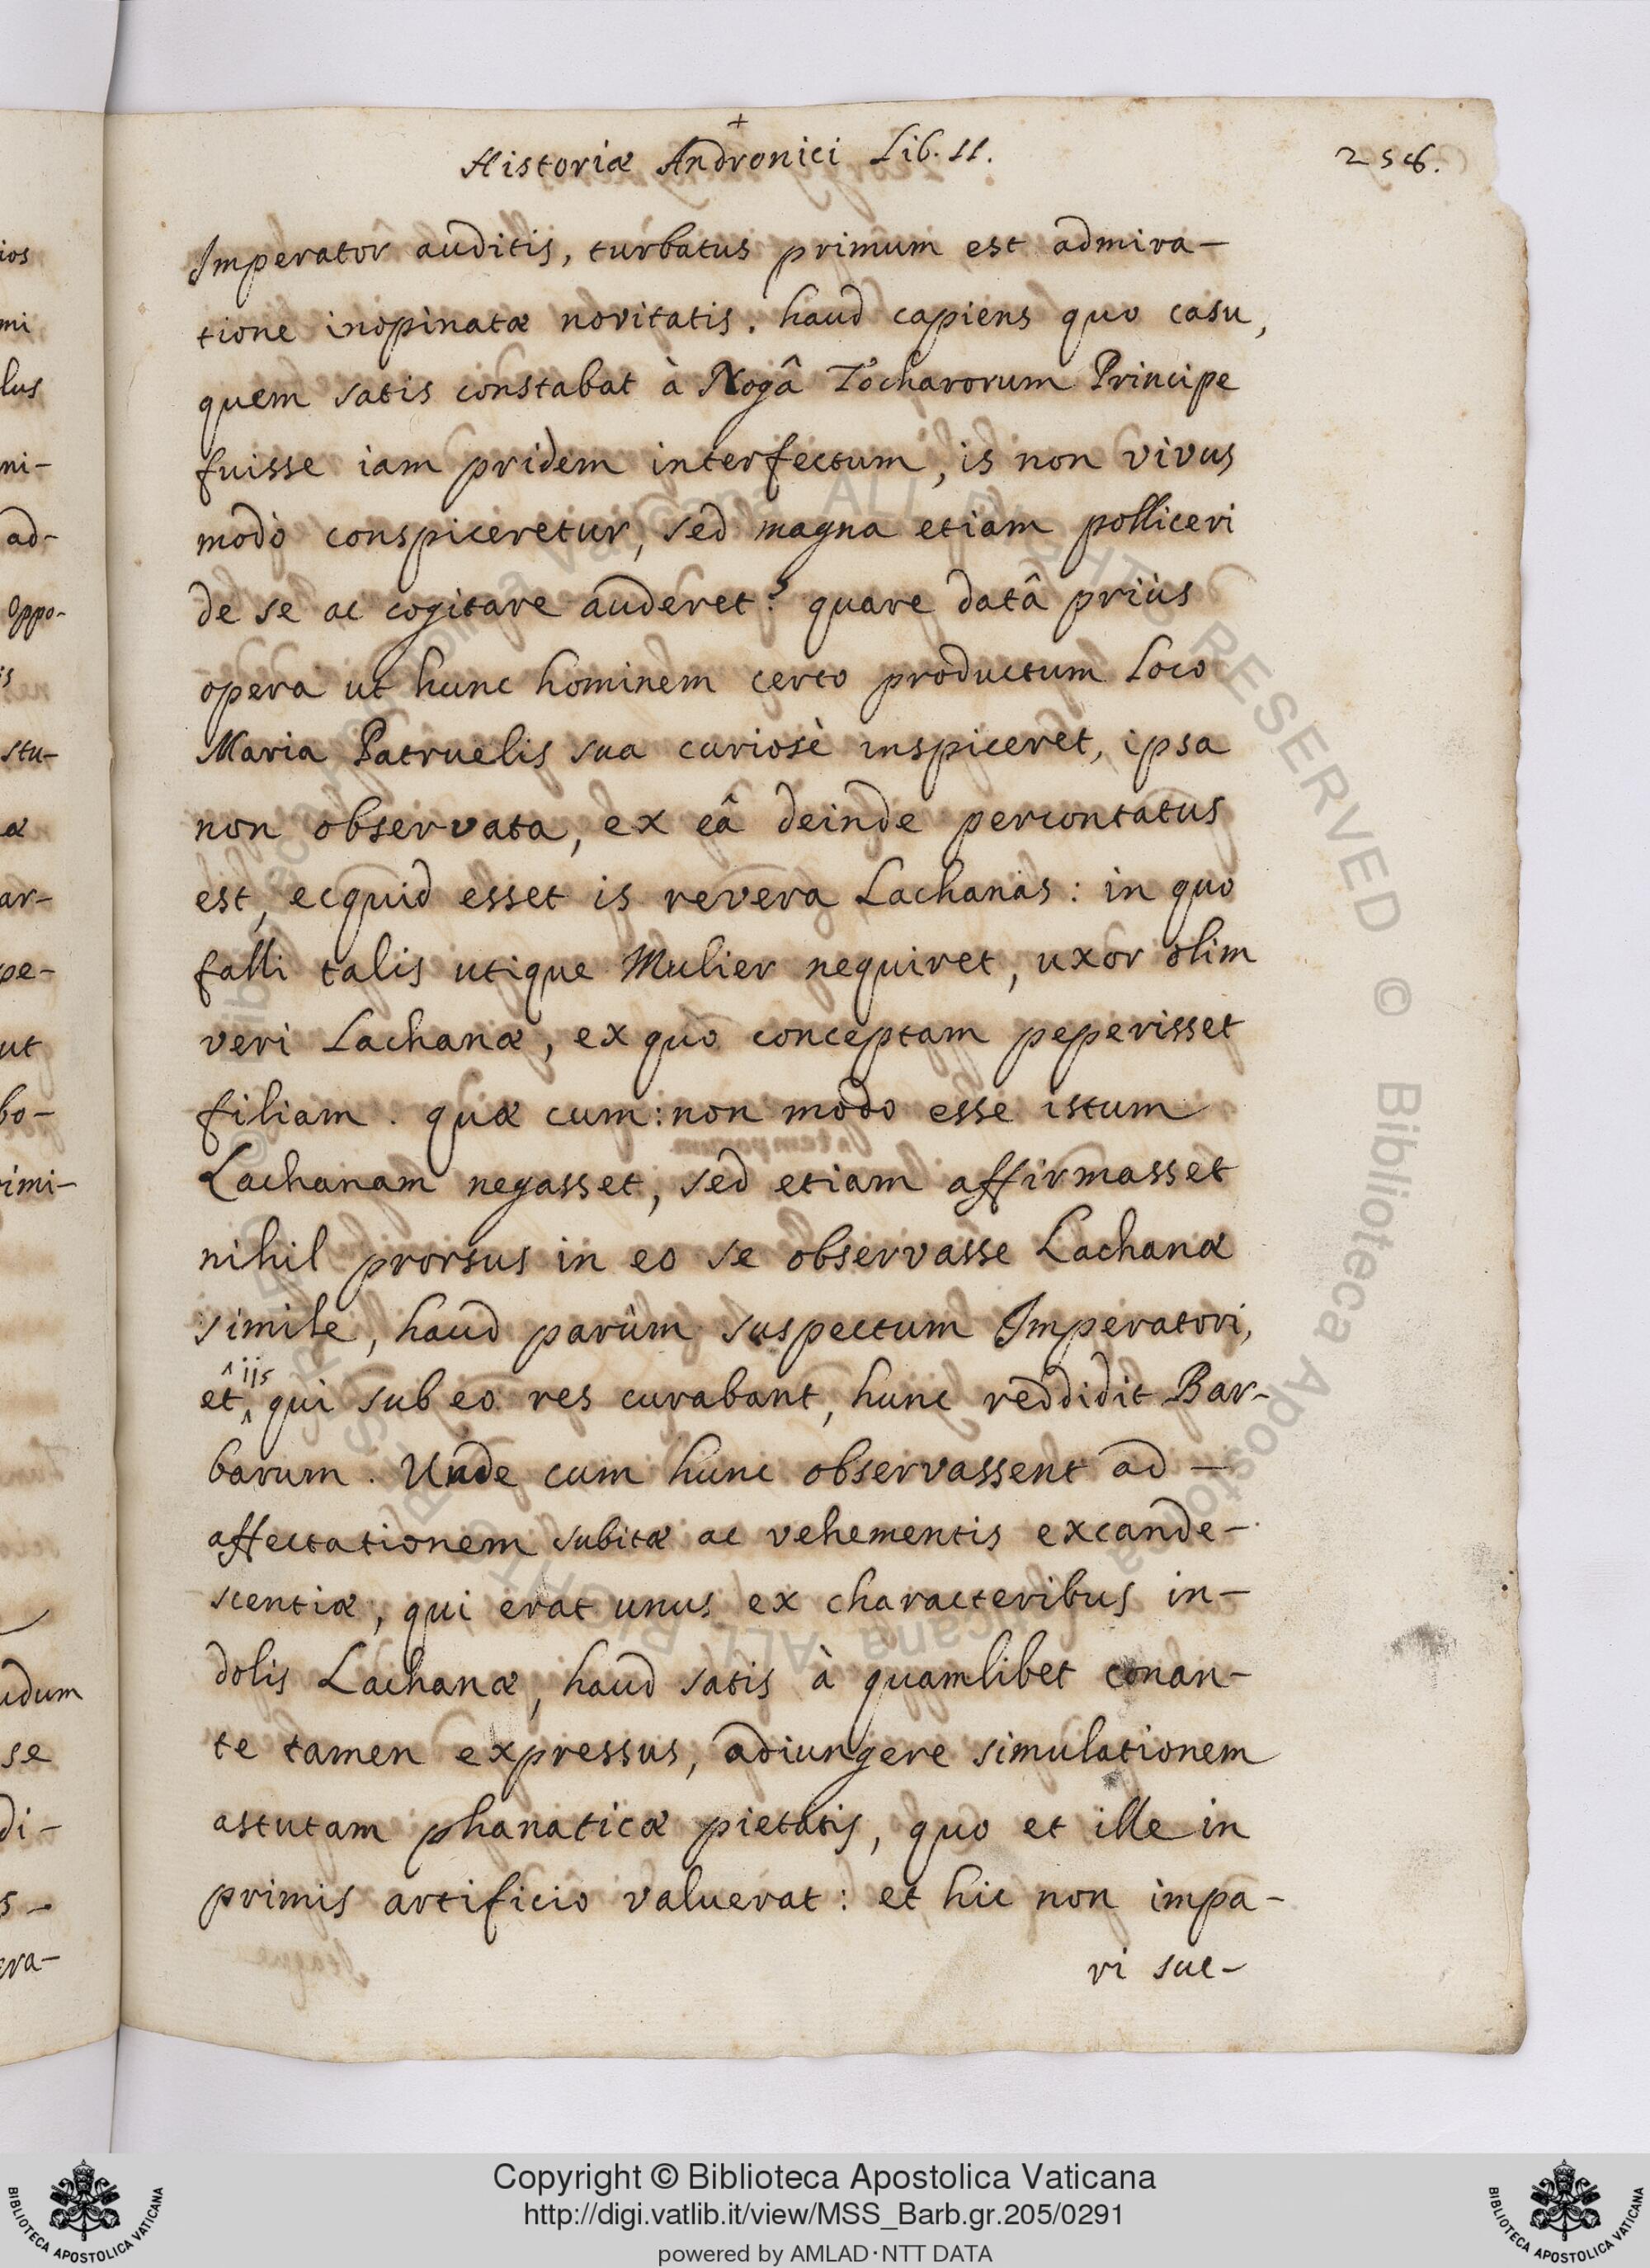 +
Historiæ Andronici Lib. II.
256.
Imperator auditis, turbatus primum est admira-
tione inopinatæ novitatis. haud capiens quo casu,
quem satis constabat à Nogâ Tocharorum Principe
fuisse iam pridem interfectum, is non vivus
modò conspiceretur, sed magna etiam polliceri
de se ac cogitare auderet? quare datâ priùs
opera ut hunc hominem certo productum loco
Maria Patruelis sua curiosè inspiceret, ipsa
non observata, ex eâ deinde percontatus
est, ecquid esset is revera Lachanas: in quo
falli talis utique Mulier nequiret, uxor olim
veri Lachanæ, ex quo conceptam peperisset
filiam. quæ cum: non modo esse istum
Lachanam negasset, sed etiam affirmasset
nihil prorsus in eo se observasse Lachanæ
simile, haud parùm suspectum Imperatori,
et ^iis qui sub eo res curabant, hunc reddidit Bar-
barum. Unde cum hunc observassent ad-
affectationem subitæ ac vehementis excande-
scentiæ, qui erat unus ex characteribus in-
dolis Lachanæ, haud satis à quamlibet conan-
te tamen expressus, adiungere simulationem
astutam phanaticæ pietatis, quo et ille in
primis artificio valuerat: et hic non impa-
ri suc-
ios
mi
lus
ni-
ad-
oppo-
is
stu-
æ
ar-
pe-
ut
bo-
rimi-
udum
se
di-
s-
era-
© Biblioteca Apostolica Vaticana ALL RIGHTS RESERVED © Biblioteca Apostolica Vaticana ALL RIGHTS RESERVED
BIBLIOTECA APOSTOLICA VATICANA
Copyright © Biblioteca Apostolica Vaticana
http://digi.vatlib.it/view/MSS_Barb.gr.205/0291
powered by AMLAD·NTT DATA
BIBLIOTECA APOSTOLICA VATICANA